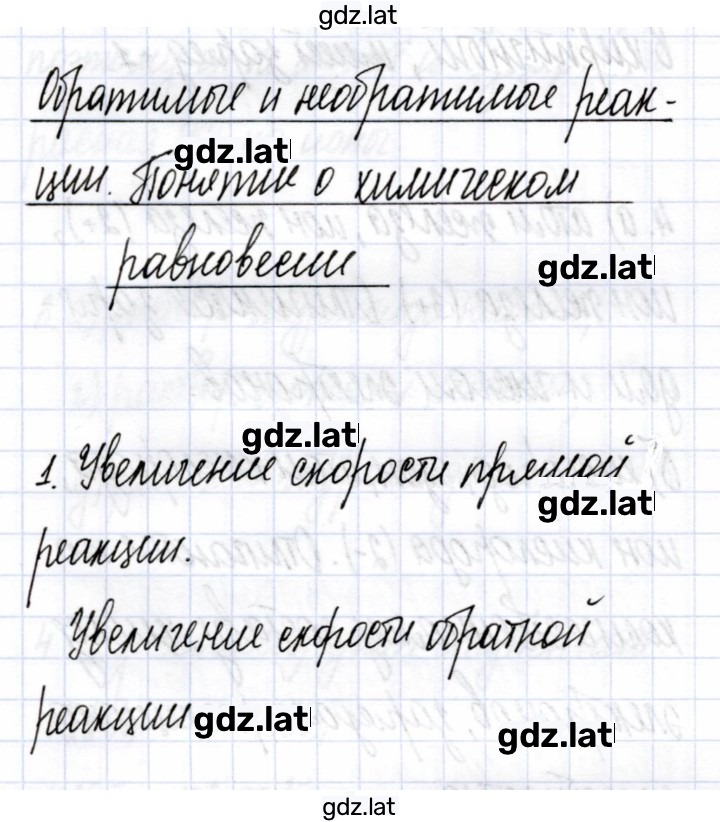 gdz.lat
Обратимые и необратимые реак-
gdz.lat
ции. Понятие о химическом
равновесии
gdz.lat
gdz.lat
1. Увеличение скорости прямой
gdz.lat
реакции.
Увеличение скорости обратной
реакции gdz.lat
gdz.lat
gdz.lat